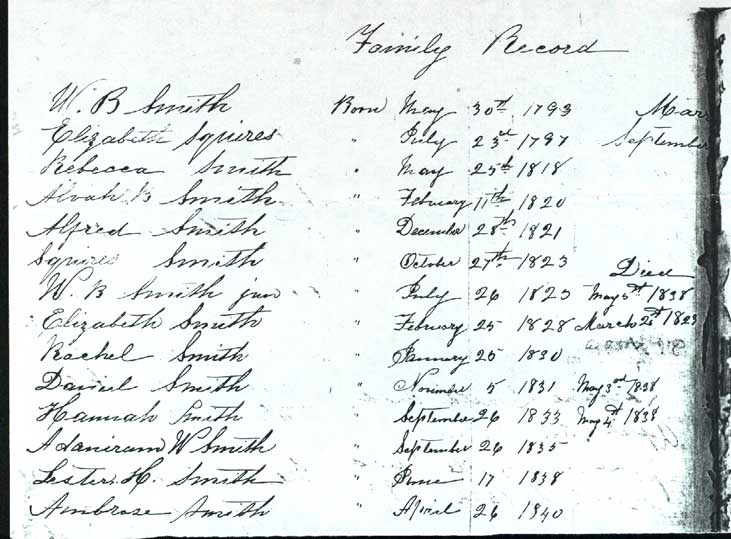 Family Record
W. B Smith Born May 30th 1793 Mar
Elizabeth Squires " July 23d 1797 September
Rebecca Smith " May 25th 1818
Alvah B Smith " February 11th 1820
Alfred Smith " December 28th 1821
Squires Smith " October 27th 1823 Died
W. B Smith jun " July 26 1825 May 5th 1838
Elizabeth Smith " February 25 1828 March 1829
Rachel Smith " January 25 1830
Daniel Smith " November 5 1831 May 3rd 1838
Hannah Smith " September 26 1833 May 4th 1838
Adaniram W Smith " September 26 1835
Lester H. Smith " June 17 1838
Ambrose Smith " April 26 1840